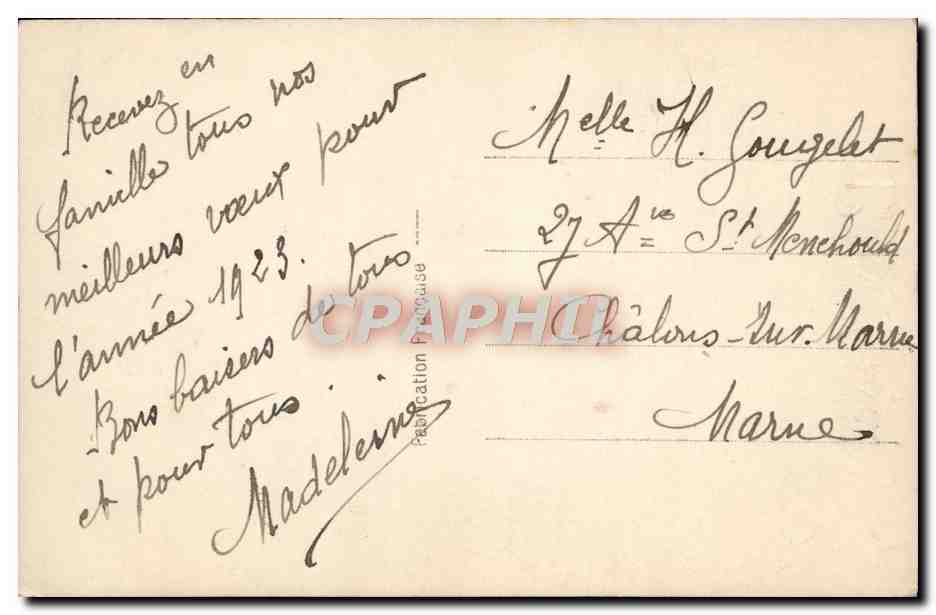 Recevez en
famille tous nos
meilleurs vœux pour
l'année 1923.
Bons baisers de tous
et pour tous.
Madeleine
Fabrication Française
CPAPHIL
Melle H. Gougelet
27 Aue St Menehould
Châlons-sur-Marne
Marne